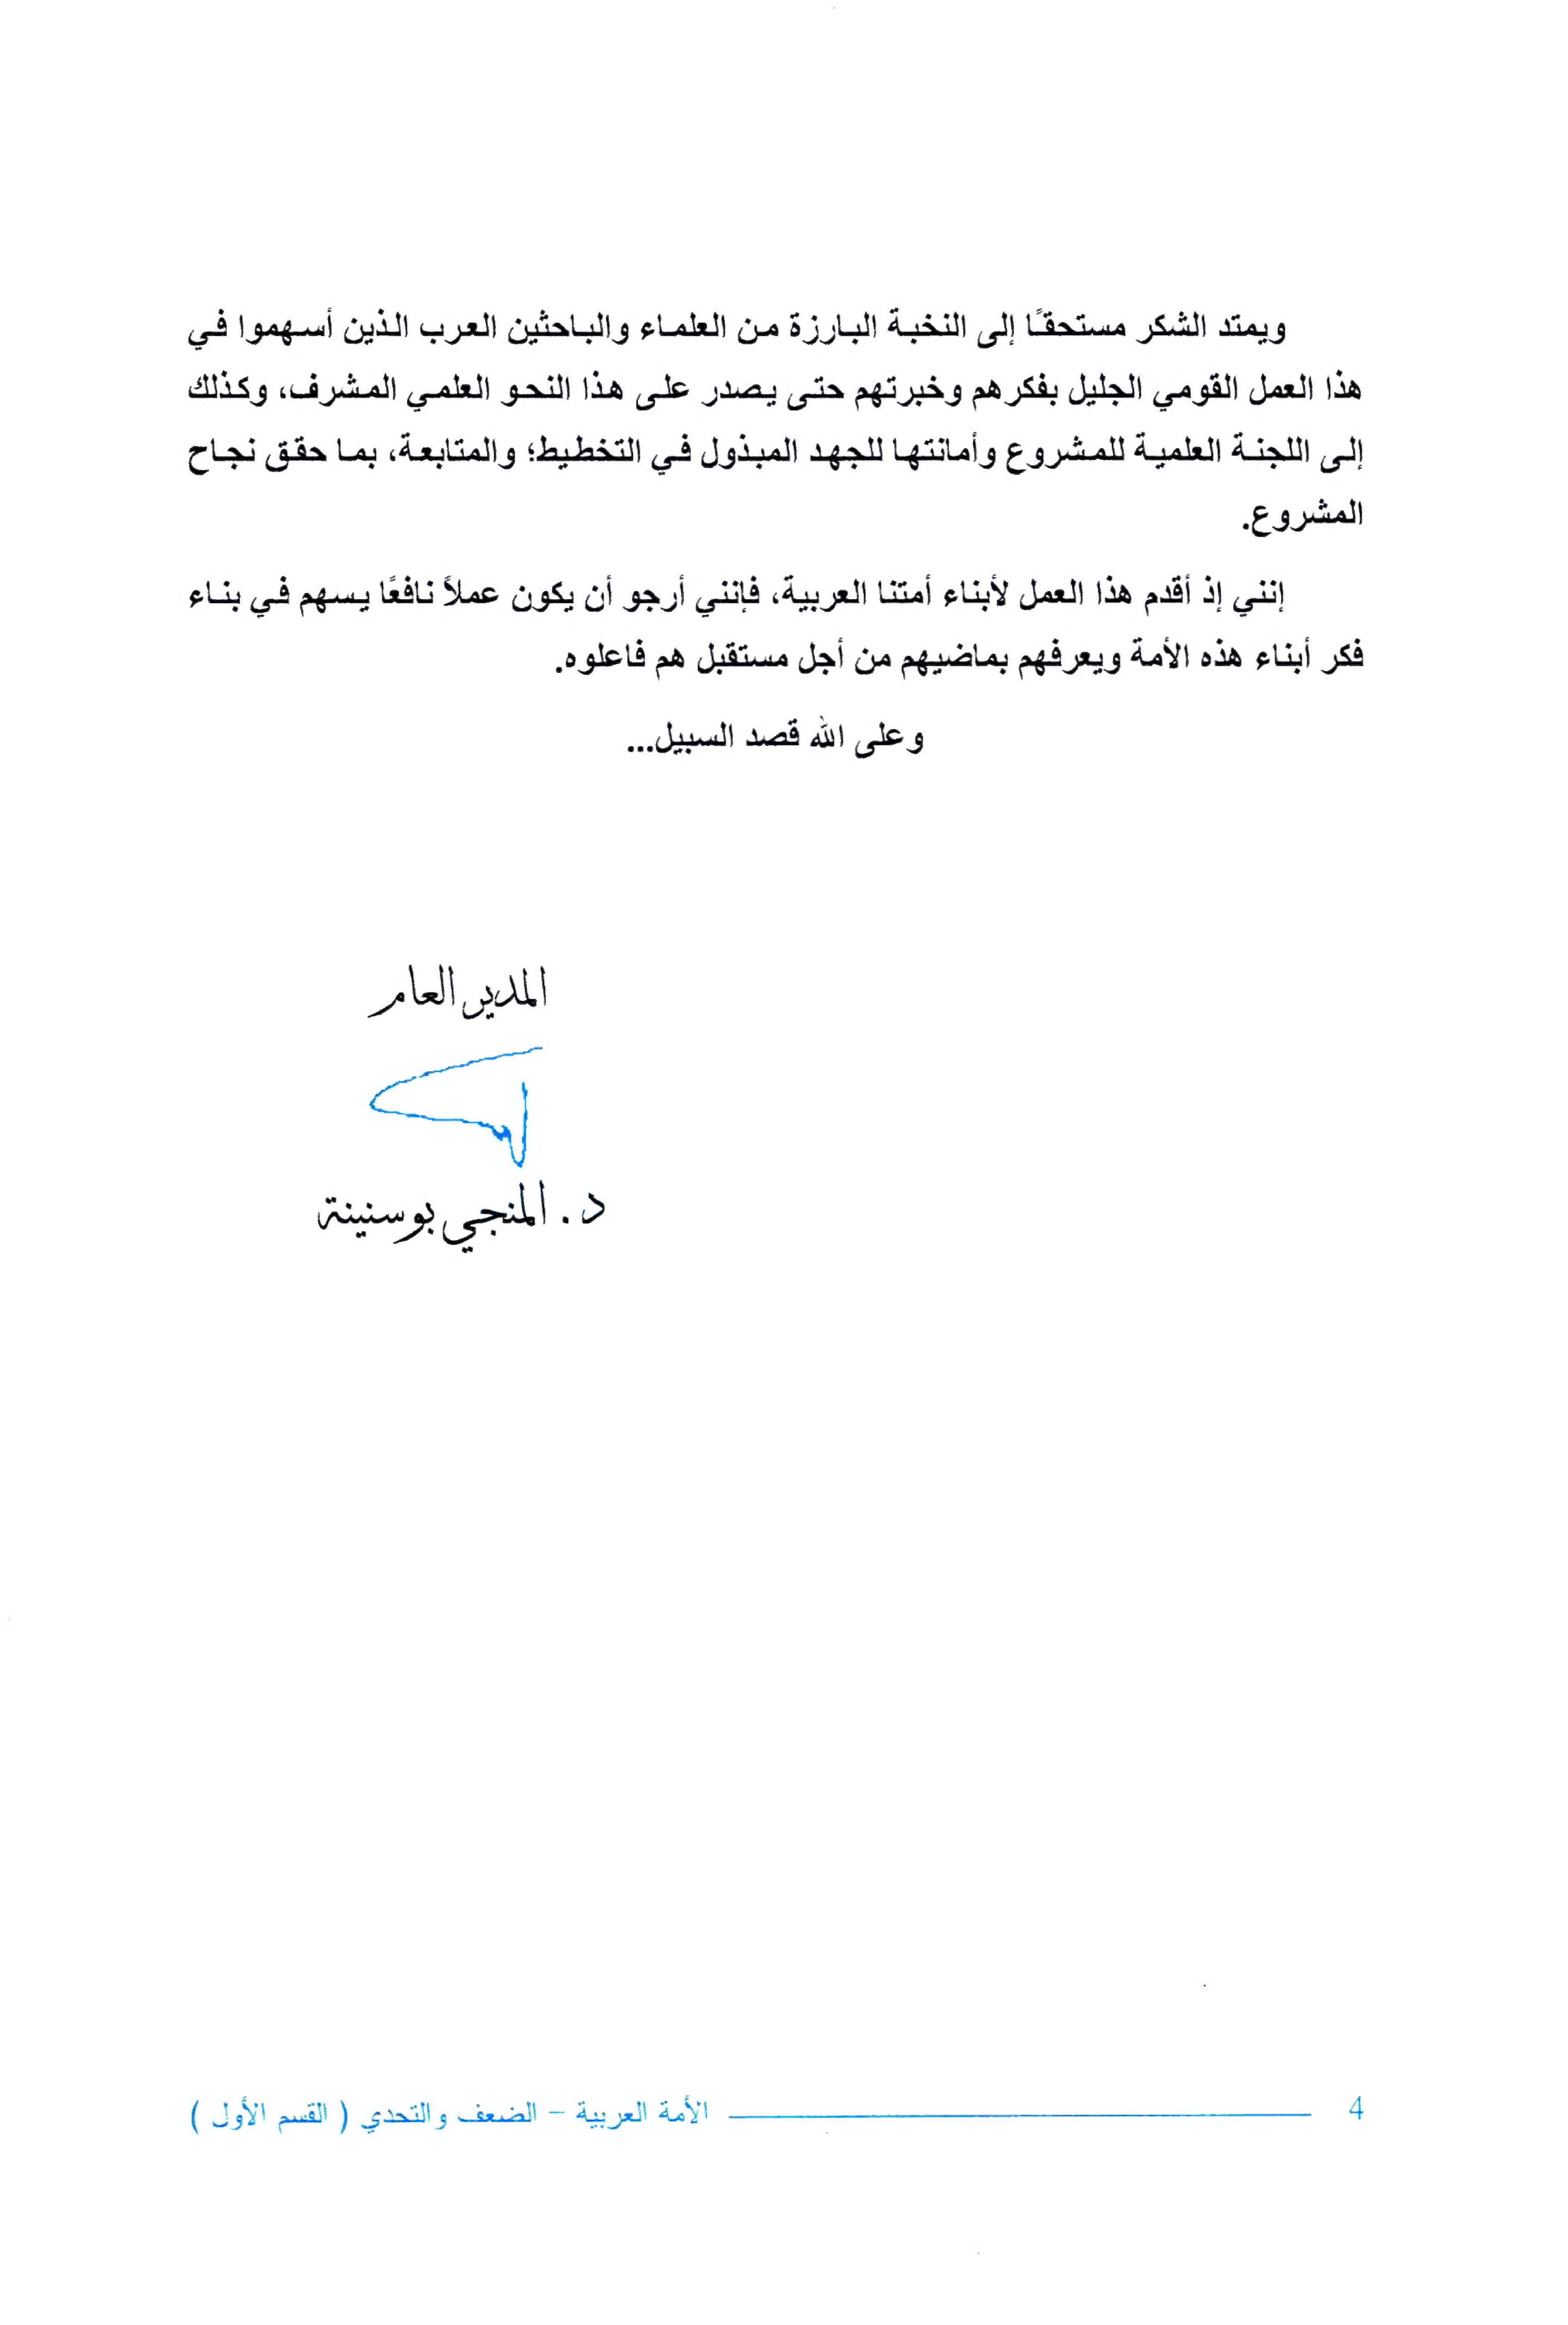 ويمتد الشكر مستحقًا إلى النخبة البارزة من العلماء والباحثين العرب الذين أسهموا في
هذا العمل القومي الجليل بفكرهم وخبرتهم حتى يصدر على هذا النحو العلمي المشرف، وكذلك
إلى اللجنة العلمية للمشروع وأمانتها للجهد المبذول في التخطيط؛ والمتابعة، بما حقق نجاح
المشروع.
إنني إذ أقدم هذا العمل لأبناء أمتنا العربية، فإنني أرجو أن يكون عملاً نافعًا يسهم في بناء
فكر أبناء هذه الأمة ويعرفهم بماضيهم من أجل مستقبل هم فاعلوه.
وعلى الله قصد السبيل...
المدير العام
د. المنجي بوسنينة
4 الأمة العربية – الضعف والتحدي ( القسم الأول )